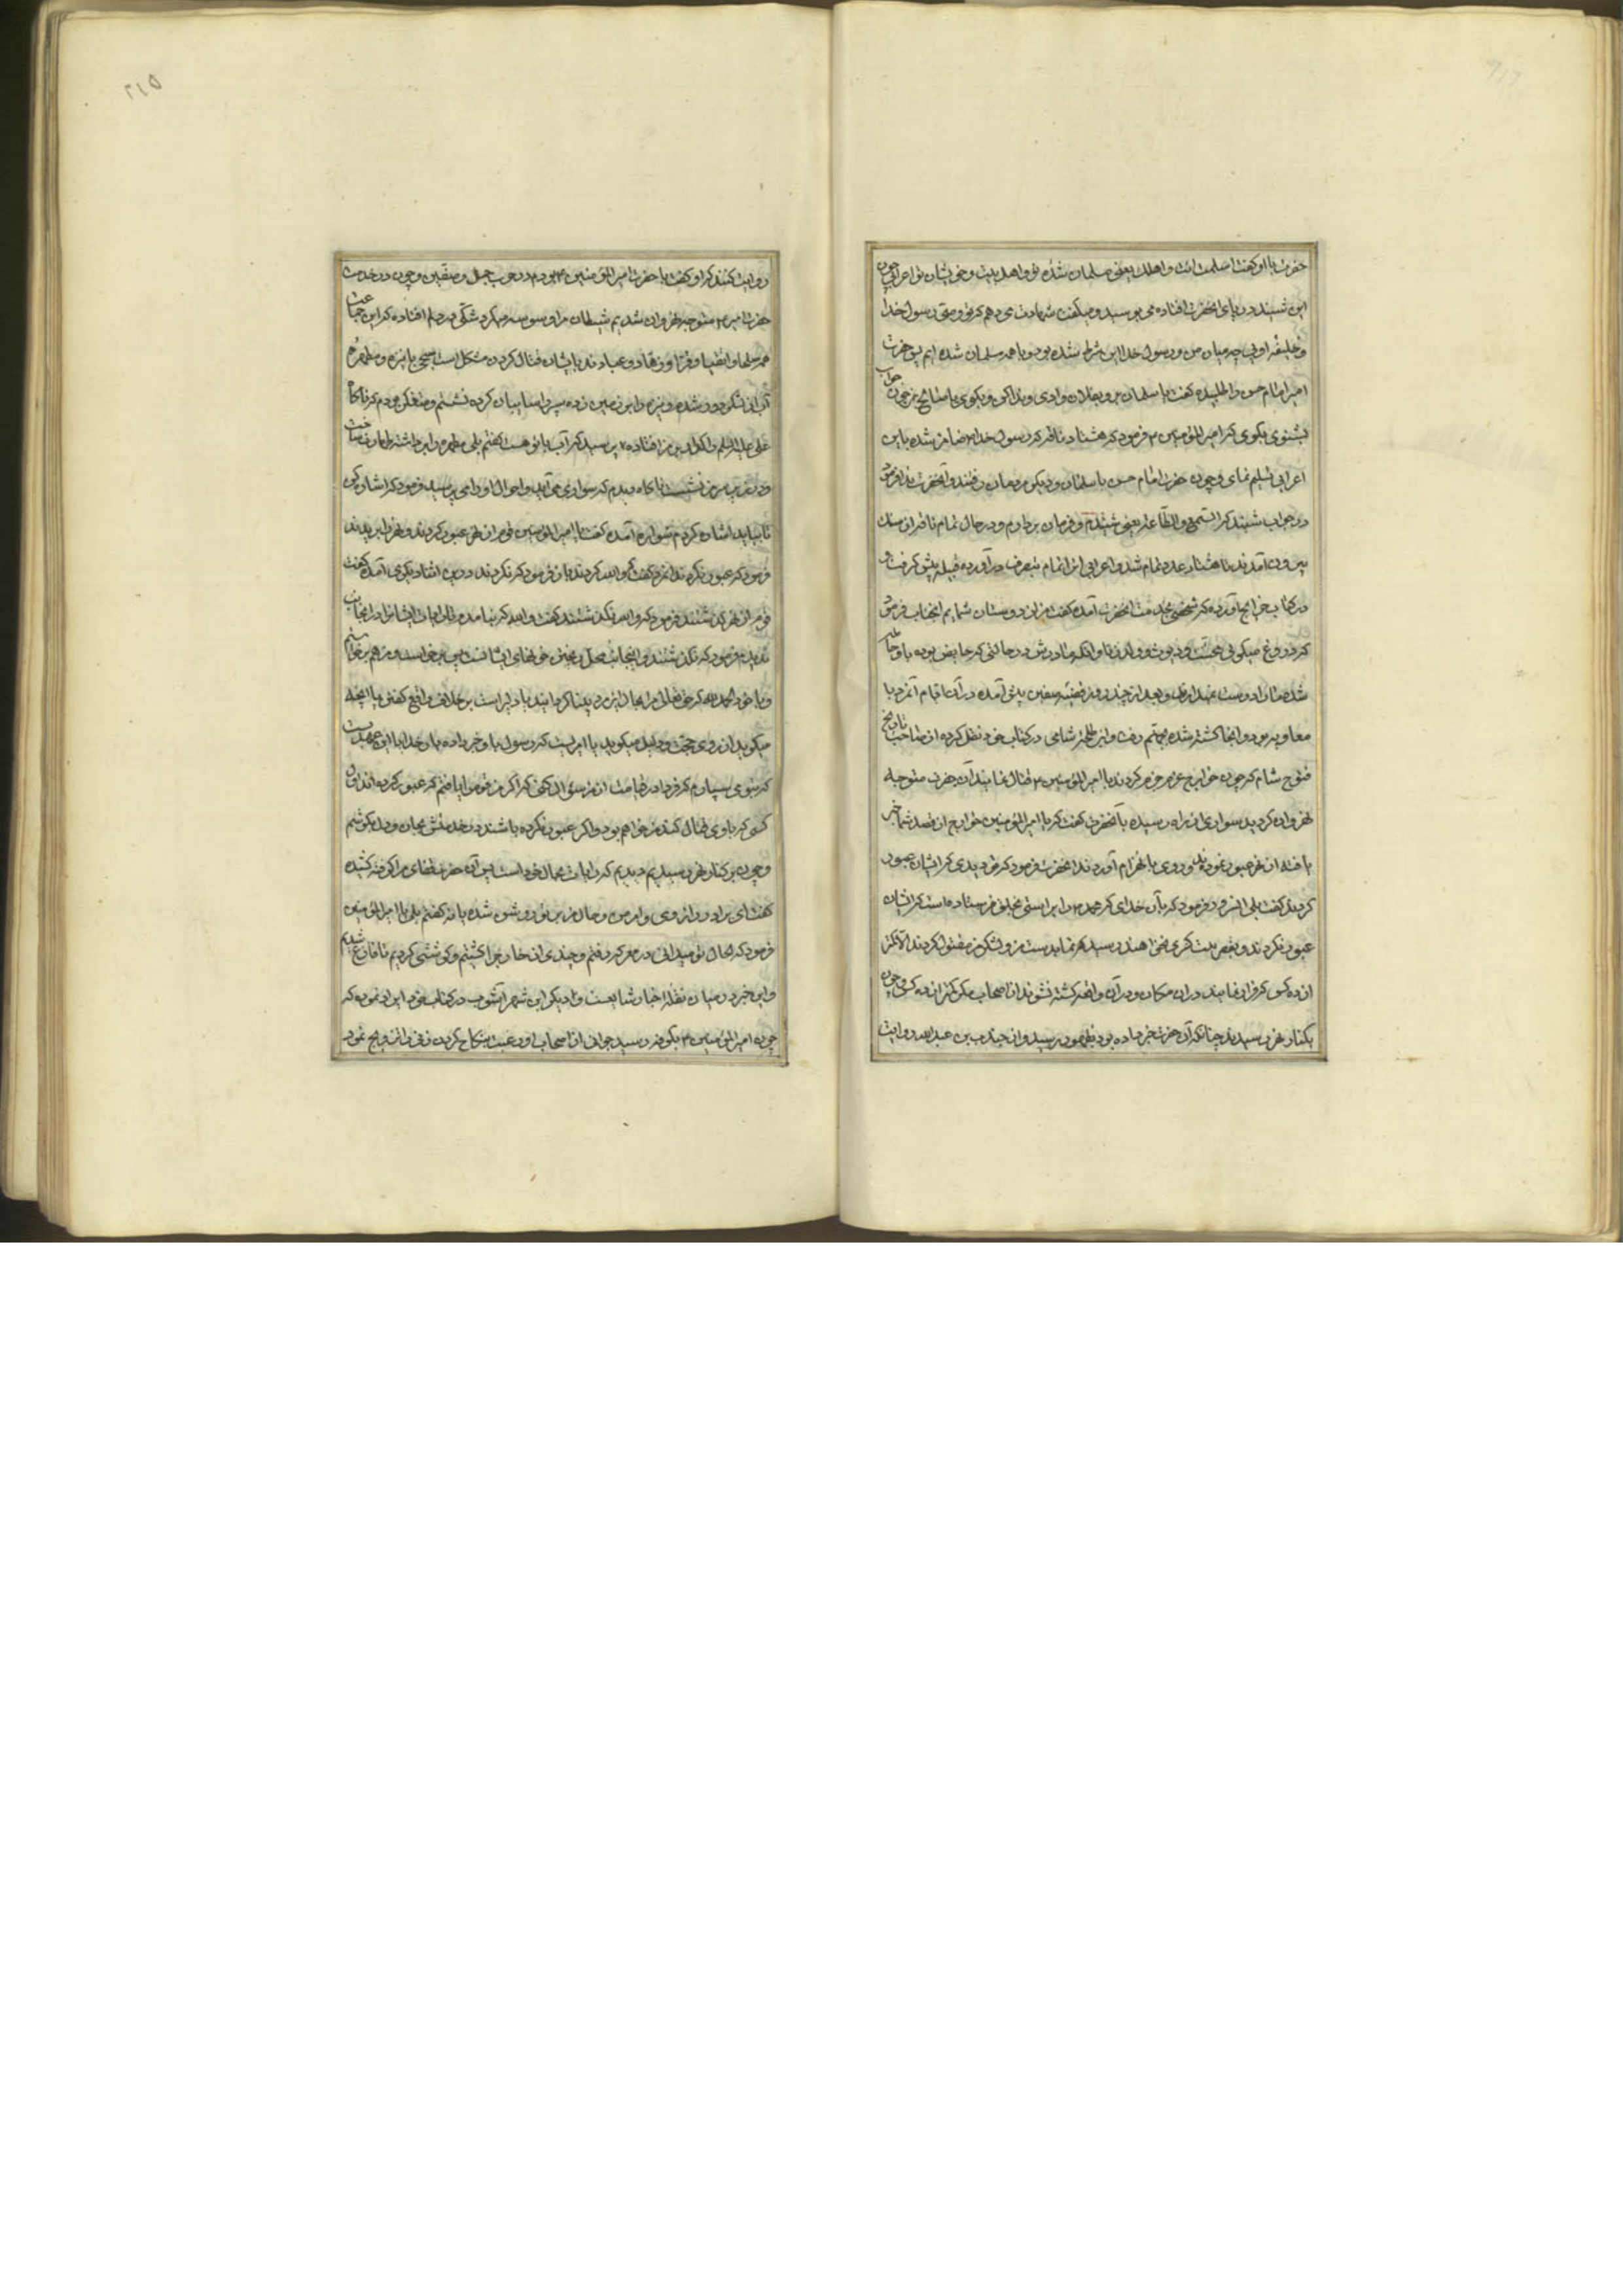 حضرت با او گفت اسلمت انت و اهلك یعنی مسلمان شدهٔ تو و اهل بیت و خویشان تو اعرابی چون
این شنید در پای آنحضرت افتاده می بوسید و میگفت شهادت می دهم که توئی وصی رسول خدا
و خلیفه او پس چه میان من و رسول خدا این شرط شده بود و ما همه مسلمان شده ایم پس حضرت
امیر امام حسن را طلبیده گفت با سلمان برو بفلان وادی و ندا کن و بگوی یا صالح یا صالح چون جواب
بشنوی بگوی که امیر المؤمنین ۴ فرمود که هشتاد ناقه که رسول خدا ضامن شده باین
اعرابی تسلیم نمای و چون حضرت امام حسن با سلمان و دیگر مردمان رفتند و آنحضرت ندا فرمود
در جواب شنید که السمع و الطاعة یعنی شنیدم و فرمان بردارم و در حال تمام ناقه از سنك
بیرون آمدند تا هشتاد عدد تمام شد و اعرابی انرا تمام بتصرف در آورده قبیله پیش گرفت و
در کتاب خرایج آورده که شخصی بخدمت آنحضرت آمده گفت من از دوستان شمایم انجناب فرمود
که دروغ میگوئی
شده ما را دوست نمیدارند و بعد از چند روز قضیه صفین پیش آمده در آن ایام آنمرد با
معاویه بود و آنجا کشته شده بجهنم رفت و ابن طلحه شامی در کتاب خود نقل کرده از صاحب تاریخ
فتوح شام که چون خوارج عزم جزم کردند با امیر المؤمنین ۴ قتال نمایند آن حضرت متوجه
نهروان گردید سواری از راه رسیده با آنحضرت گفت که یا امیر المؤمنین خوارج از قصد شما خبر
یافته از نهر عبور نموده اند و روی بانهزام آوردند آنحضرت فرمود که تو دیدی که ایشان عبور
کردند گفت بلی انسرور فرمود که بآن خدای که محمد را براستی بخلق فرستاده است که ایشان
عبور نکردند و بقصر بنت کسری نخواهند رسید
از ده کس کم فرار نمایند در ان مکان و در آن واقعه کشته نشوند از اصحاب من مگر کمتر از ده کس و چون
بکنار نهر رسیدند چنانکه آن حضرت خبر داده بود بظهور رسید و از جندب بن عبدالله روایت
روایت کنند که او گفت با حضرت امیر المؤمنین ۴ بودم در حرب جمل و صفین و چون در خدمت
حضرت امیر ۴ متوجه نهروان شدیم شیطان مرا وسوسه میکرد شکی در دلم افتاده که این جماعت
همه صلحا و اتقیا و قرا و زهاد و عبادند با ایشان قتال کردن مشکل است صبحی با نیزه و مطهرهٔ
آب از لشکر دور شده و نیزه را بر زمین زده سپر را سایبان کرده نشستم و متفکر بودم که ناگاه
علی علیه السلم را پرسید که آب با تو هست گفتم بلی مطهره را برداشته
ناگاه دیدم که سواری می آید و احوال او را می پرسید فرمود که اشاره کن
تا بیاید اشاره کردم سواره آمده گفت یا امیر المؤمنین قوم از نهر عبور کردند و نهر را بریدند
فرمود که عبور نکرده اند انمرد گفت که والله کردند باز فرمود که نکردند در این اثنا دیگری آمده گفت
قوم از نهر گذشتند فرمود که والله نگذشتند گفت والله که نیامدم تا رایات ایشانرا در انجانب
ندیدم فرمود که نگذشتند و اینجانب محل ریختن خونهای ایشانست پس برخاست و من هم برخواستم
و با خود الحمد لله که حق تعالی مرا بحال این مرد بینا گردانید یا دلیر است بر خلاف واقع گفتن یا آنچه
میگوید از روی حجت و دلیل میگوید یا امریست که رسول باو خبر داده بار خدایا این عهدیست
که بتو می سپارم که فردا در قیامت از من سؤال کنی که اگر من قوم را یافتم که عبور کرده اند اول
کسی که با وی قتال کند من خواهم بود و اگر عبور نکرده باشند در خدمتش بجان و دل بکوشم
و چون بر کنار نهر رسیدیم دیدیم که رایات بحال خود است پس آن حضرت قفای مرا گرفته کشیده
گفت ای برادر ازدی و امر من و حال من بر تو روشن شده یا نه گفتم بلی یا امیر المؤمنین
فرمود که الحال تو میدانی در معرکه رفتم و چندی از خارجیرا کشتم و کوششی کردیم تا فارغ شدیم
و این خبر در میان نقله اخبار شایعست و دیگر ابن شهر آشوب در کتاب خود ایراد نموده که
چون امیر المؤمنین ۴ بکوفه رسید جوانی از اصحاب او رغبت بنکاح کرده زنی را تزویج نمود